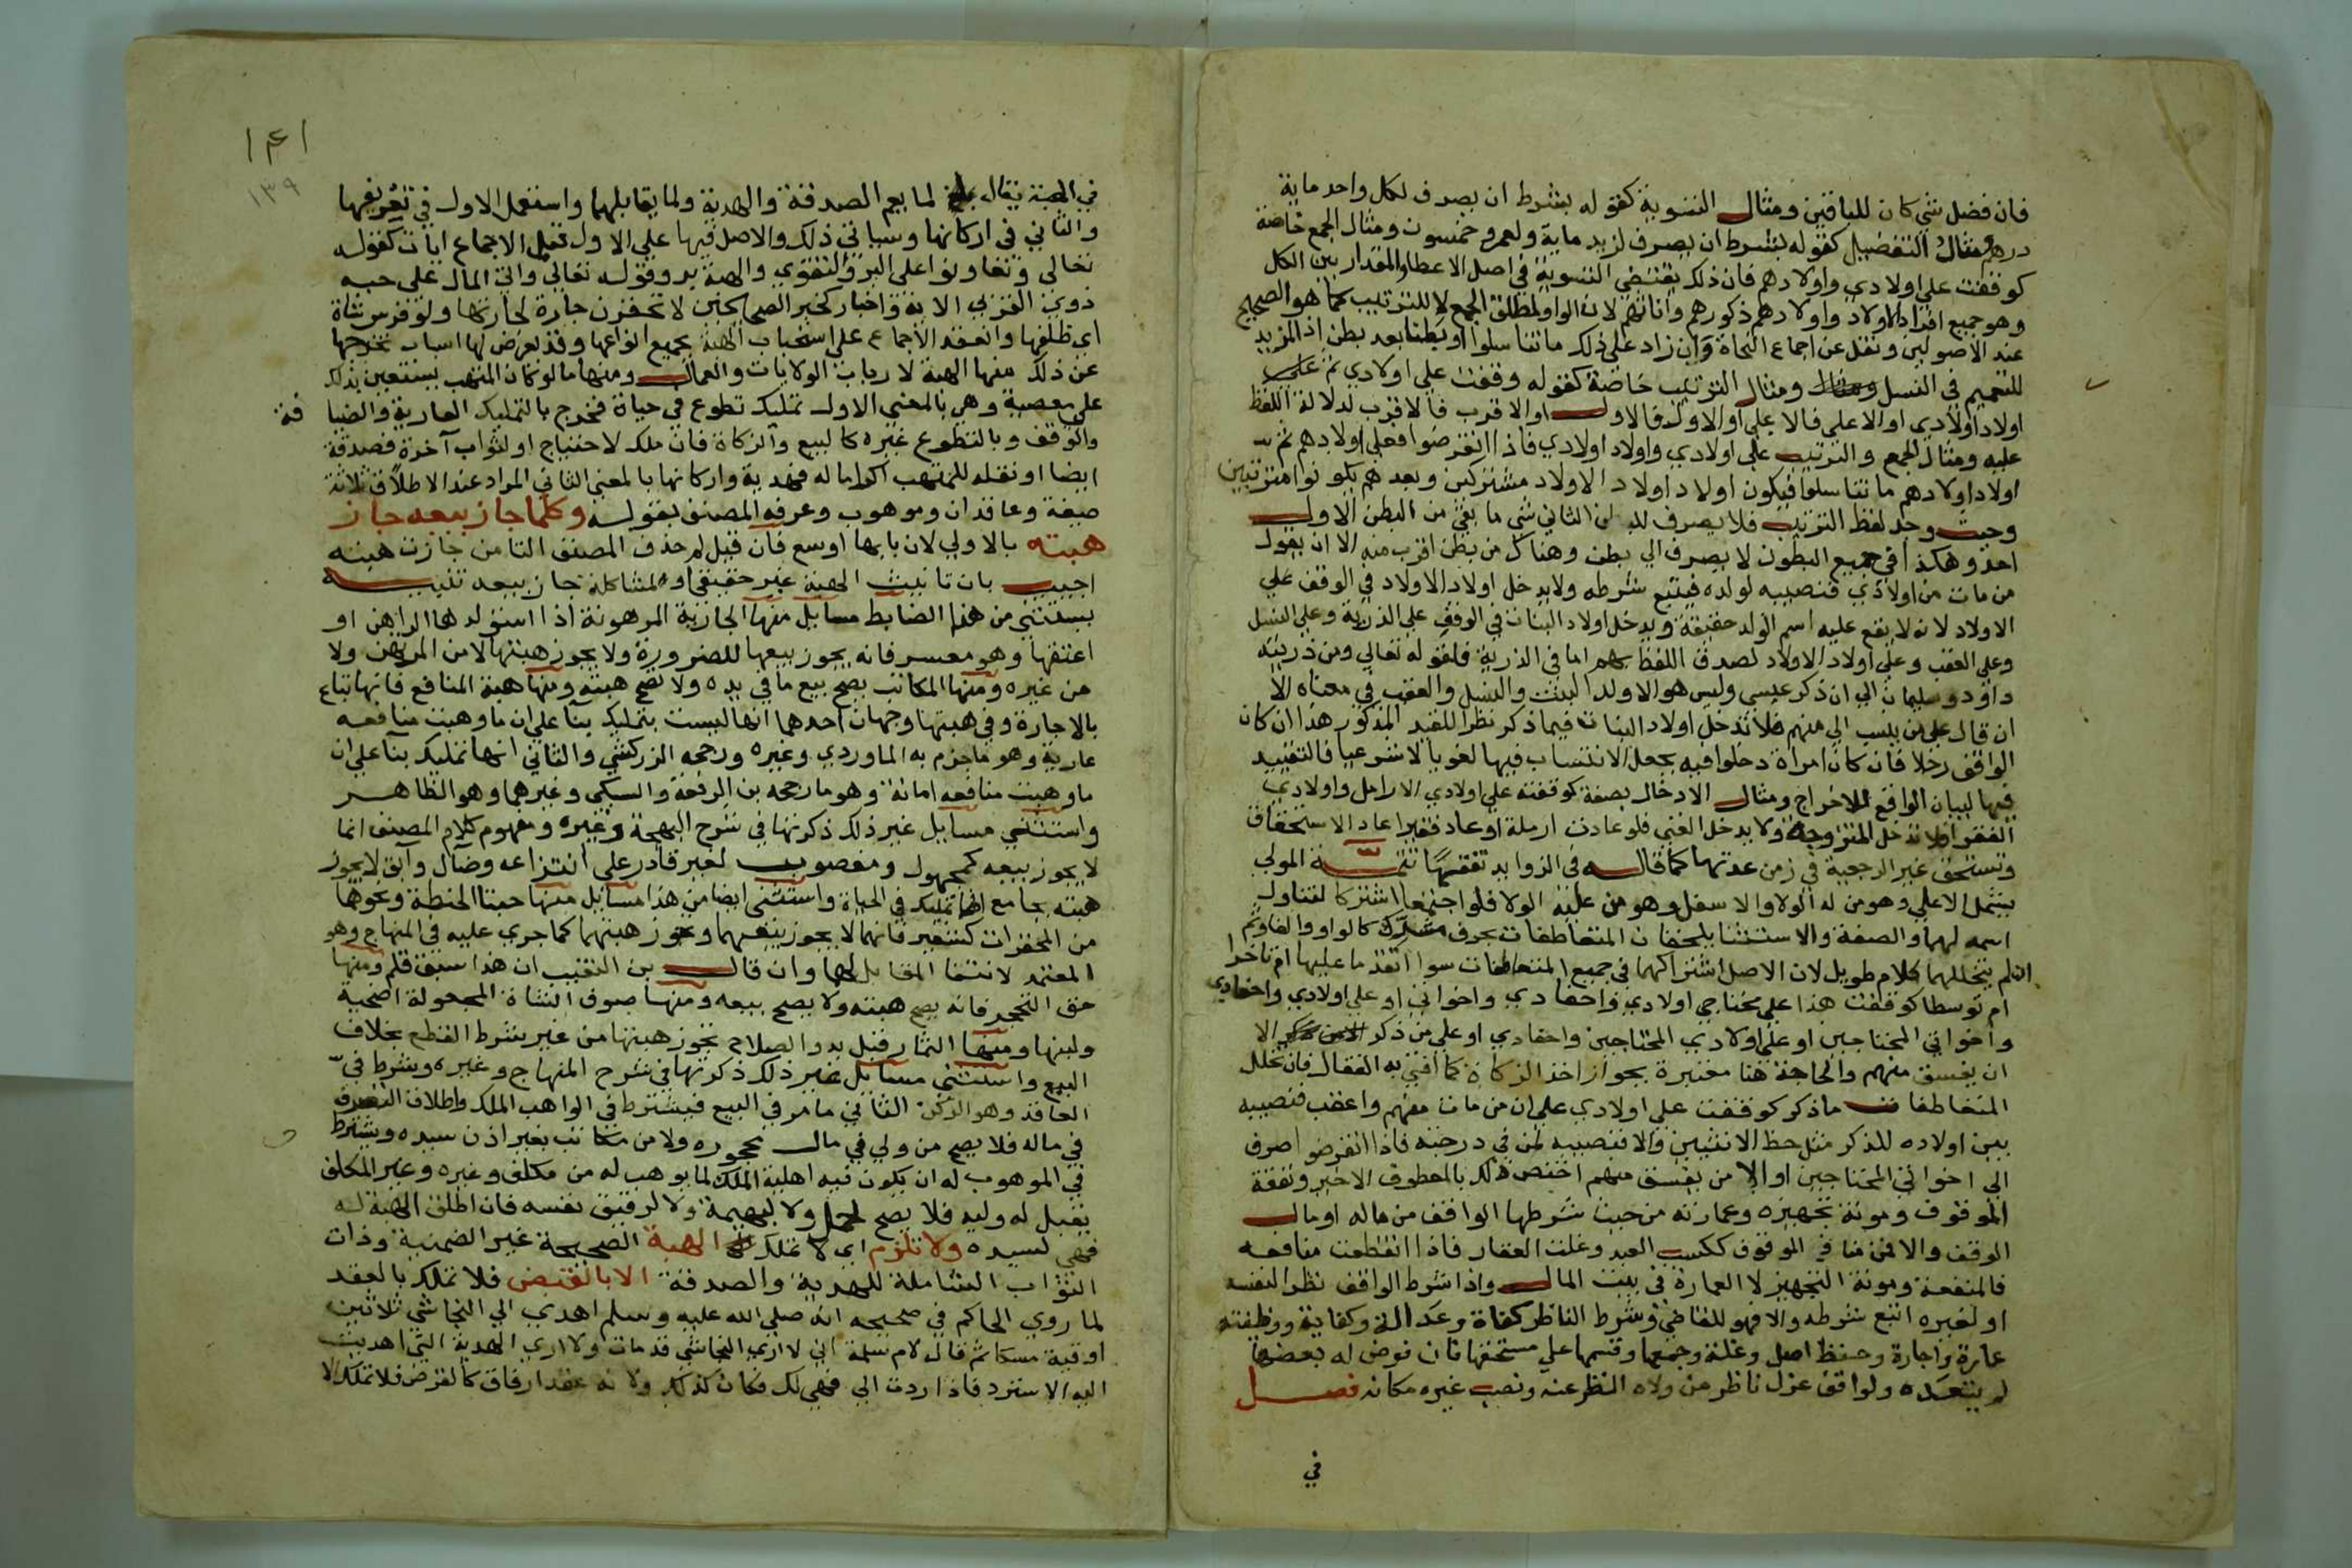 فان فضل شي كان للباقين ومثال التسوية كقوله بشرط ان يصرف لكل واحد ماية
درهم ومثال التفضيل كقوله بشرط ان يصرف لزيد ماية ولعمرو خمسون ومثال الجمع خاصة
كوقفت على اولادي واولادهم فان ذلك يقتضي التسوية في اصل الاعطا والمقدار بين الكل
وهو جميع افراد الاولاد واولادهم ذكورهم واناثهم لان الواو لمطلق الجمع لا للترتيب كما هو الصحيح
عند الاصوليين ونقل عن اجماع النحاة وان زاد على ذلك ما تناسلوا او بطنا بعد بطن اذ المزيد
للتعميم في النسل ومثال الترتيب خاصة كقوله وقفت على اولادي ثم على
اولاد اولادي او الاعلى فالاعلى او الاول فالاول او الاقرب فالاقرب لدلالة اللفظ
عليه ومثال الجمع والترتيب على اولادي واولاد اولادي فاذا انقرضوا فعلى اولادهم ثم
اولاد اولادهم ما تناسلوا فيكون اولاد اولاد الاولاد مشتركين وبعدهم يكونوا مترتبين
وحيث وجد لفظ الترتيب فلا يصرف للبطن الثاني شي ما بقي من البطن الاول
احد وهكذا في جميع البطون لا يصرف الى بطن وهناك من بطن اقرب منه الا ان يقول
من مات من اولادي فنصيبه لولده فيتبع شرطه ولا يدخل اولاد الاولاد في الوقف على
الاولاد لانه لا يقع عليه اسم الولد حقيقة ويدخل اولاد البنات في الوقف على الذرية وعلى النسل
وعلى العقب وعلى اولاد الاولاد لصدق اللفظ بهم اما في الذرية فلقوله تعالى ومن ذريته
داود وسليمان الى ان ذكر عيسى وليس هو الا ولد البنت والنسل والعقب في معناه الا
ان قال على من ينسب الي منهم فلا تدخل اولاد البنات فيما ذكر نظرا للقيد المذكور هذا ان كان
الواقف رجلا فان كان امراة دخلوا فيه بجعل الانتساب فيها لغويا لا شرعيا فالتقييد
فيها لبيان الواقع لا للاخراج ومثال الادخال بصفة كوقفته على اولادي الارامل واولادي
الفقرا فلا تدخل المتزوجة ولا يدخل الغني فلو عادت ارملة او عاد فقيرا عاد الاستحقاق
وتستحق غير الرجعية في زمن عدتها كما قاله في الزوايد تفقها تتمة المولى
يشمل الاعلى وهو من له الولا والاسفل وهو من عليه الولا فلو اجتمعا اشتركا لتناول
اسمه لهما والصفة والاستثنا يلحقان المتعاطفات بحرف مشرك كالواو والفا وثم
ان لم يتخللهما كلام طويل لان الاصل اشتراكهما في جميع المتعاطفات سوا اتقدما عليها ام تاخرا
ام توسطا كوقفت هذا على محتاجي اولادي واحفادي واخواني او على اولادي واحفادي
واخواني المحتاجين او على اولادي المحتاجين واحفادي او على من ذكر الا
ان يفسق منهم والحاجة هنا معتبرة بجواز اخذ الزكاة كما افتى به القفال فان تخلل
المتعاطفات ما ذكر كوقفت على اولادي على ان من مات منهم واعقب فنصيبه
بين اولاده للذكر مثل حظ الانثيين والا فنصيبه لمن في درجته فاذا انقرضوا صرف
الى اخواني المحتاجين او الا من يفسق منهم اختص ذلك بالمعطوف الاخير ونفقة
الموقوف ومونة تجهيزه وعمارته من حيث شرطها الواقف من ماله او مال
الوقف والا فمن منافع الموقوف ككسب العبد وغلت العقار فاذا انقطعت منافعه
فالمنفعة ومونة التجهيز لا العمارة في بيت المال واذا شرط الواقف نظر النفسه
او لغيره اتبع شرطه والا فهو للقاضي وشرط الناظر كفاة وعدالة وكفاية ووظيفته
عمارة واجارة وحفظ اصل وغلة وجمعها وقسمها على مستحقها فان فوض له بعضها
لم يتعده ولواقف عزل ناظر من ولاه النظر عنه ونصب غيره مكانه فصل
في
١٤١
١٣٩
في الهبة يقال لما يعم الصدقة والهدية ولما يقابلهما واستعمل الاول في تعريفها
والثاني في اركانها وسياتي ذلك والاصل فيها على الاول قبل الاجماع ايات كقوله
تعالى وتعاونوا على البر والتقوى والهبة بر وقوله تعالى واتى المال على حبه
ذوي القربى الاية واخبار كخبر الصحيحين لا تحقرن جارة لجارتها ولو فرسن شاة
اي ظلفها وانعقد الاجماع على استحباب الهبة بجميع انواعها وقد يعرض لها اسباب تخرجها
عن ذلك منها الهبة لارباب الولايات والعمال ومنها ما لو كان المتهب يستعين بذلك
على معصية وهي بالمعنى الاول تمليك تطوع في حياة فخرج بالتمليك العارية والضيا فة
والوقف وبالتطوع غيره كالبيع والزكاة فان ملك لاحتياج او لثواب آخرة فصدقة
ايضا او نقله للمتهب اكراما له فهدية واركانها بالمعنى الثاني المراد عند الاطلاق ثلاثة
صيغة وعاقدان وموهوب وعرفه المصنف بقوله وكلما جاز بيعه جاز
هبته بالاولى لان بابها اوسع فان قيل لم حذف المصنف التا من جازت هبته
اجيب بان تانيث الهبة غير حقيقي او لمشاكلة جاز بيعه تنبيه
يستثنى من هذا الضابط مسايل منها الجارية المرهونة اذا استولدها الراهن او
اعتقها وهو معسر فانه يجوز بيعها للضرورة ولا يجوز هبتها لا من المرتهن ولا
من غيره ومنها المكاتب يصح بيع ما في يده ولا تصح هبته ومنها هبة المنافع فانها تباع
بالاجارة وفي هبتها وجهان احدهما انها ليست بتمليك بنا على ان ما وهبت منافعه
عارية وهو ما جزم به الماوردي وغيره ورجحه الزركشي والثاني انها تمليك بنآ على ان
ما وهبت منافعه امانة وهو ما رجحه بن الرفعة والسبكي وغيرهما وهو الظاهر
واستثني مسايل غير ذلك ذكرتها في شرح البهجة وغيره ومفهوم كلام المصنف انما
لا يجوز بيعه كمجهول ومغصوب لغير قادر على انتزاعه وضال وآبق لا يجوز
هبته بجامع انها تمليك في الحياة واستثنى ايضا من هذا مسايل منها حبتا الحنطة ونحوها
من المحقرات كشعير فانهما لا يجوز بيعهما وتجوز هبتهما كما جرى عليه في المنهاج وهو
المعتمد لانتفا المقابل لها وان قال بن النقيب ان هذا سبق قلم ومنها
حق التحجر فانه يصح هبته ولا يصح بيعه ومنها صوف الشاة المجعولة اضحية
ولبنها ومنها الثمار قبل بدو الصلاح تجوز هبتها من غير شرط القطع بخلاف
البيع واستثني مسايل غير ذلك ذكرتها في شرح المنهاج وغيره وشرط في
العاقد وهو الركن الثاني ما مر في البيع فيشترط في الواهب الملك واطلاق التصرف
في ماله فلا يصح من ولي في مال محجوره ولا من مكاتب بغير اذن سيده ويشترط
في الموهوب له ان يكون فيه اهلية الملك لما يوهب له من مكلف وغيره وغير المكلف
يقبل له وليه فلا يصح لحمل ولا لبهيمة ولا لرقيق نفسه فان اطلق الهبة له
فهي لسيده ولا تلزم اي لا تملك الهبة الصحيحة غير الضمنية وذات
الثواب الشاملة للهدية والصدقة الا بالقبض فلا تملك بالعقد
لما روى الحاكم في صحيحه انه صلى الله عليه وسلم اهدى الى النجاشي ثلاثين
اوقية مسكا ثم قال لام سلمة اني لا ارى النجاشي قد مات ولا ارى الهدية التي اهديت
اليه الا سترد فاذا ردت الي فهي لك فكان كذلك ولانه عقد ارفاق كالقرض فلا تملك الا